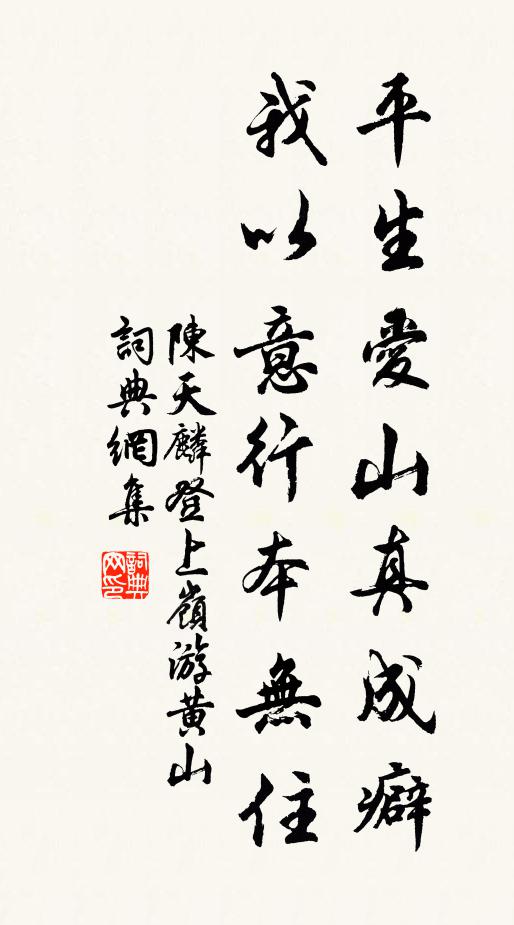 平生愛山真成癖
我以意行本無住
陳天麟登上嶺游黃山
詞典網集
詞典
网印